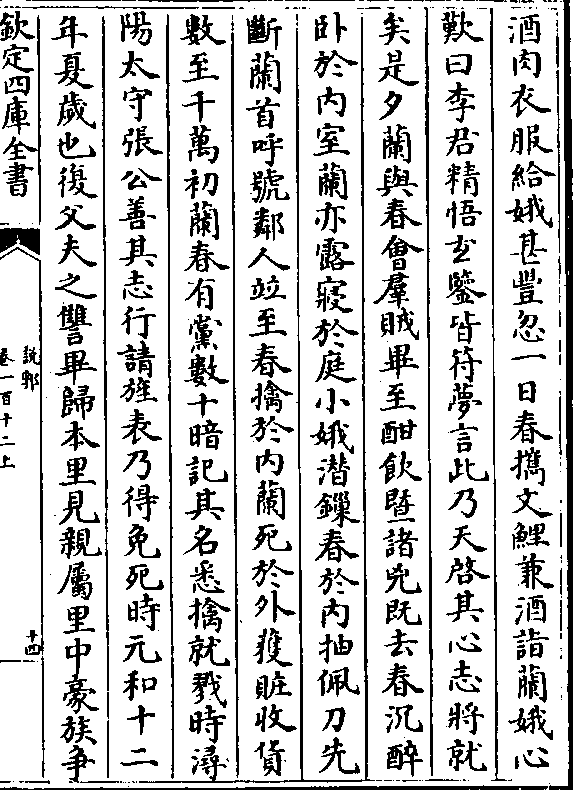 酒肉衣服給娥甚豐忽一日春擕文鯉兼酒詣蘭娥心
歎曰李君精悟玄鑒皆符夢言此乃天啓其心志將就
矣是夕蘭與春會羣賊畢至酣飲暨諸兇既去春沉醉
卧於内室蘭亦露寢於庭小娥潛鏁春於内抽佩刀先
斷蘭首呼號鄰人竝至春擒於内蘭死於外獲賍收貨
數至千萬初蘭春有黨數十暗記其名悉擒就戮時潯
陽太守張公善其志行請旌表乃得免死時元和十二
年夏歲也復父夫之讐畢歸本里見親屬里中豪族争
欽定四庫全書
說郛
卷一百十二上
十四